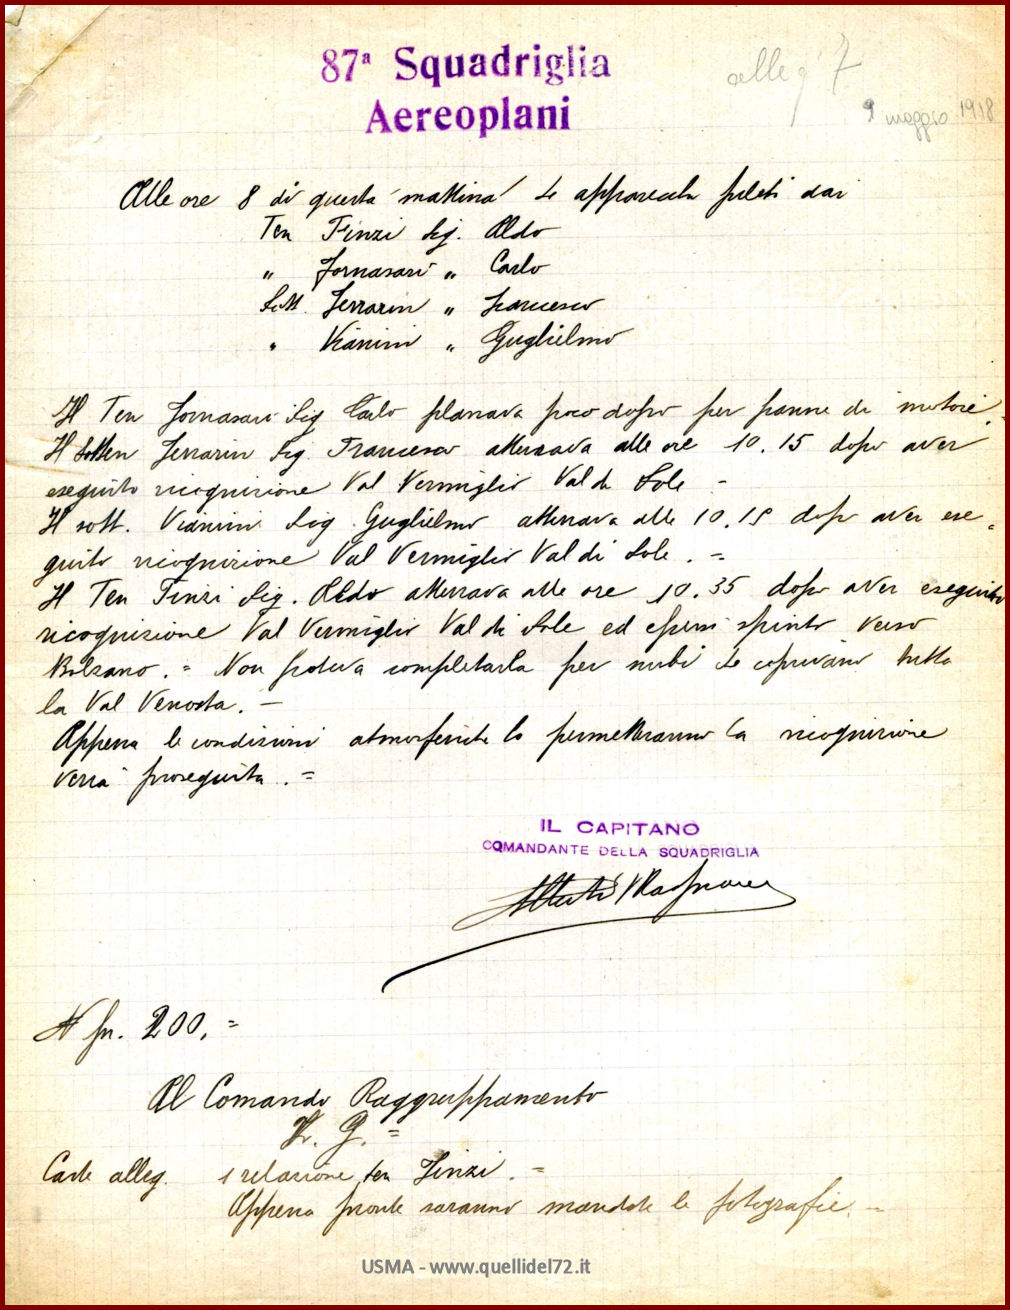 87ª Squadriglia
Aereoplani
alleg 7
9 maggio 1918
Alle ore 8 di questa mattina 4 apparecchi pilotati dai
Ten Finzi Sig. Aldo
" Fornasari " Carlo
Sott. Ferrarin " Francesco
" Vianini " Guglielmo
Il Ten Fornasari Sig Carlo planava poco dopo per panne di motore.
Il Sotten Ferrarin Sig. Francesco atterrava alle ore 10.15 dopo aver
eseguito ricognizione Val Vermiglio Val di Sole –
Il sott. Vianini Sig. Guglielmo atterrava alle 10.15 dopo aver ese=
guito ricognizione Val Vermiglio Val di Sole. =
Il Ten Finzi Sig. Aldo atterrava alle ore 10.35 dopo aver eseguito
ricognizione Val Vermiglio Val di Sole ed essersi spinto verso
Bolzano. = Non poteva completarla per nubi che coprivano tutta
la Val Venosta. –
Appena le condizioni atmosferiche lo permetteranno la ricognizione
verrà proseguita. =
IL CAPITANO
COMANDANTE DELLA SQUADRIGLIA
N pr. 200. =
Al Comando Raggruppamento
=
Carte alleg. 1 relazione ten Finzi. =
Appena pronte saranno mandate le fotografie. –
USMA - www.quellidel72.it